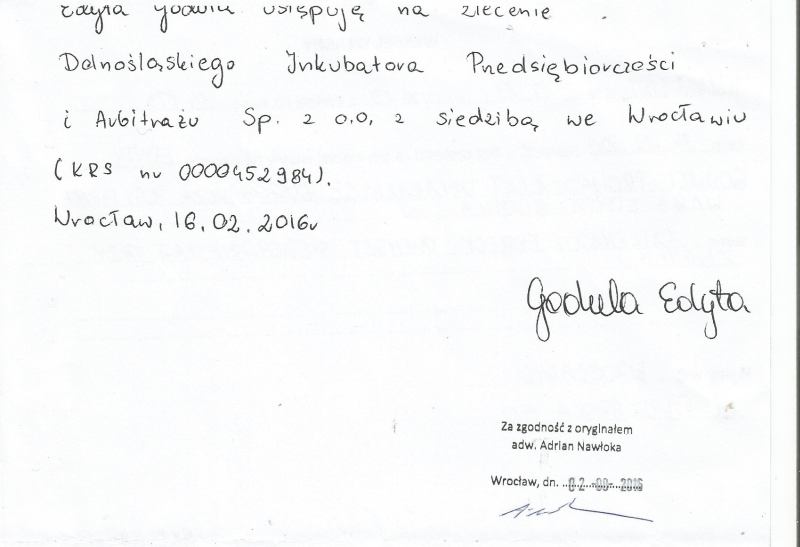 Edyta Godula na zlecenie
Dolnośląskiego Inkubatora Przedsiębiorczości
i Arbitrażu Sp. z o.o. z siedzibą we Wrocławiu
(KRS nr 0000452984).
Wrocław, 16.02.2016r
Godula Edyta
Za zgodność z oryginałem
adw. Adrian Nawłoka
Wrocław, dn.